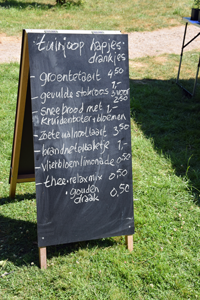 tuinjoop hapjes-
drankjes
- groentetaart 4,50
- gevulde stokroos 1,-
3 voor
2,50
- sneebrood met 1,-
kruidenboter + bloemen
- zoete walnoottaart 3,50
- brandnetelballetje 1,-
- vlierbloemlimonade 0,50
- thee • relaxmix 0,50
• gouden
draak 0,50